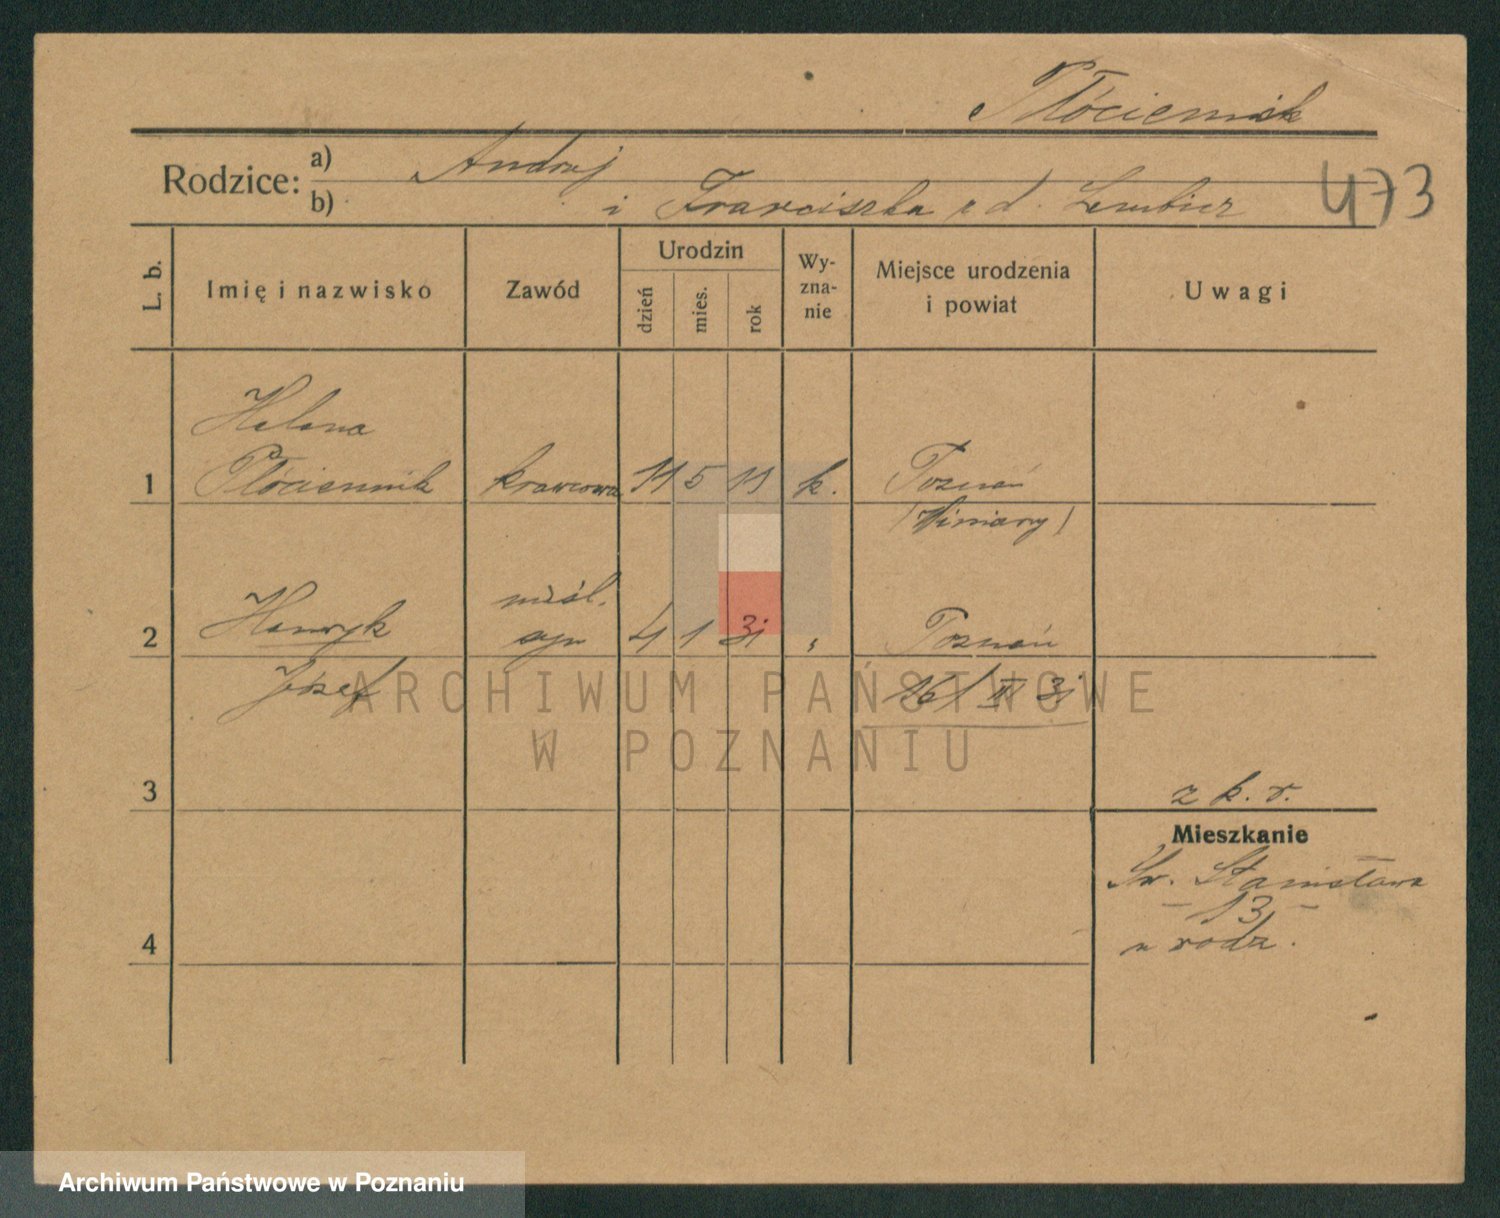 Płóciennik
Rodzice: a) Andrzej
b) i Franciszka z d.
473
L. b.
Imię i nazwisko
Zawód
Urodzin
dzień
mies.
rok
Wy-
zna-
nie
Miejsce urodzenia
i powiat
Uwagi
Helena
1 Płóciennik krawcowa 11 5 11 k. Poznań
(Winiary)
nieśl.
2 Henryk syn 4 1 31 " Poznań
Józef 16/II 31
3 z k. r.
Mieszkanie
Św. Stanisława
- 13 -
u rodz.
4
ARCHIWUM PAŃSTWOWE
W POZNANIU
Archiwum Państwowe w Poznaniu